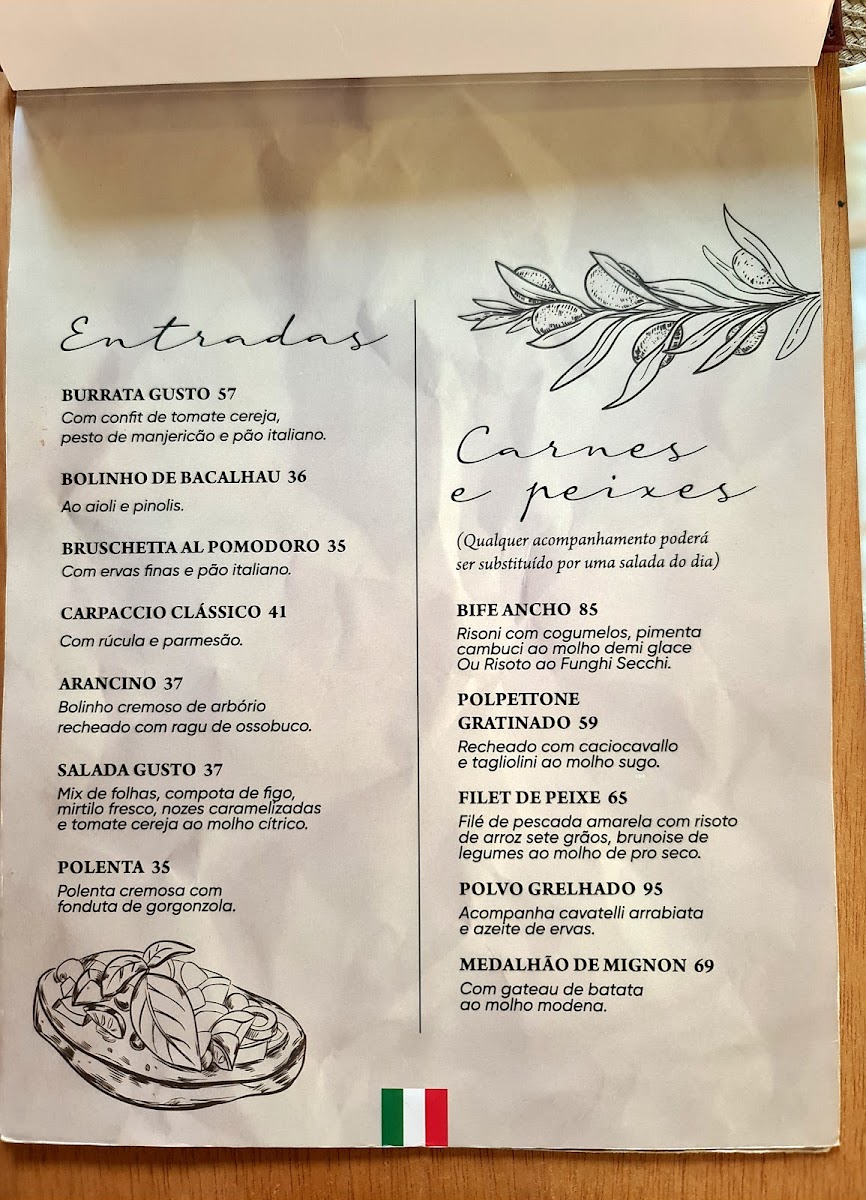 Entradas
BURRATA GUSTO 57
Com confit de tomate cereja,
pesto de manjericão e pão italiano.
BOLINHO DE BACALHAU 36
Ao aioli e pinolis.
BRUSCHETTA AL POMODORO 35
Com ervas finas e pão italiano.
CARPACCIO CLÁSSICO 41
Com rúcula e parmesão.
ARANCINO 37
Bolinho cremoso de arbório
recheado com ragu de ossobuco.
SALADA GUSTO 37
Mix de folhas, compota de figo,
mirtilo fresco, nozes caramelizadas
e tomate cereja ao molho cítrico.
POLENTA 35
Polenta cremosa com
fonduta de gorgonzola.
Carnes
e peixes
(Qualquer acompanhamento poderá
ser substituído por uma salada do dia)
BIFE ANCHO 85
Risoni com cogumelos, pimenta
cambuci ao molho demi glace
Ou Risoto ao Funghi Secchi.
POLPETTONE
GRATINADO 59
Recheado com caciocavallo
e tagliolini ao molho sugo.
FILET DE PEIXE 65
Filé de pescada amarela com risoto
de arroz sete grãos, brunoise de
legumes ao molho de pro seco.
POLVO GRELHADO 95
Acompanha cavatelli arrabiata
e azeite de ervas.
MEDALHÃO DE MIGNON 69
Com gateau de batata
ao molho modena.